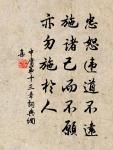 忠恕違道不遠
施諸己而不願
亦勿施於人
中庸第十三章